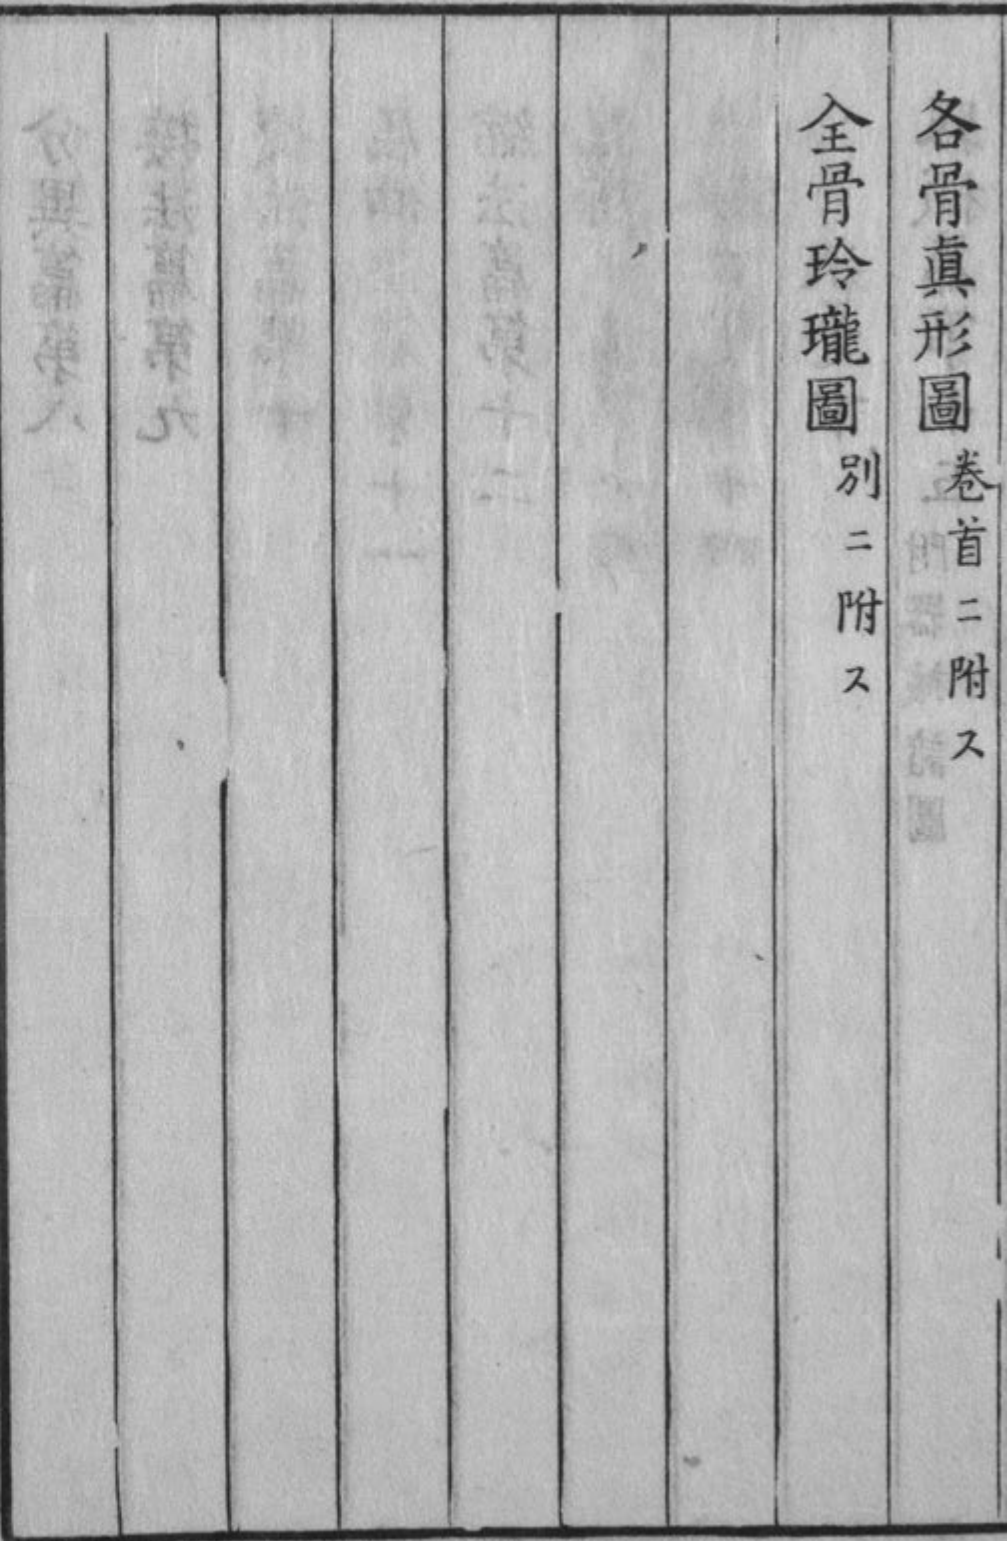 各骨眞形圖 卷首ニ附ス
全骨玲瓏圖 別ニ附ス